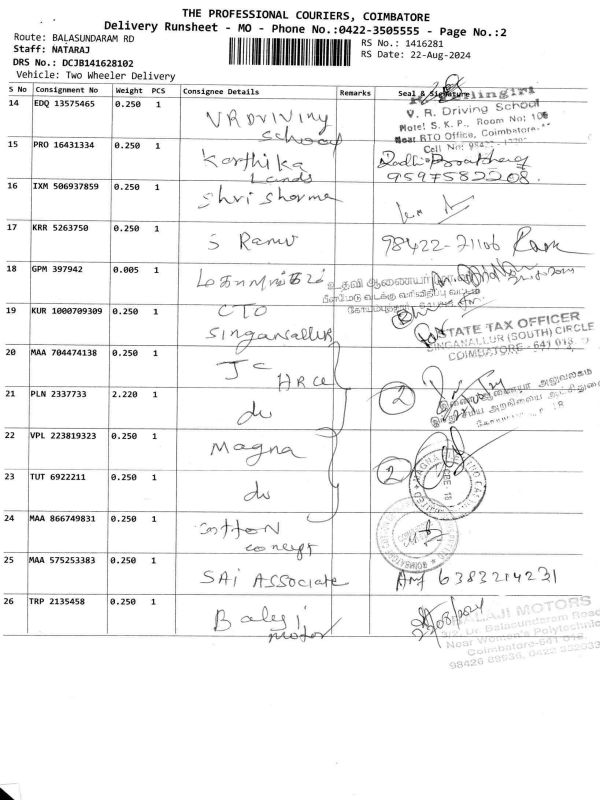 THE PROFESSIONAL COURIERS, COIMBATORE
Delivery Runsheet - MO - Phone No.:0422-3505555 - Page No.:2
Route: BALASUNDARAM RD
RS No.: 1416281
Staff: NATARAJ
RS Date: 22-Aug-2024
DRS No.: DCJB141628102
Vehicle: Two Wheeler Delivery
S No Consignment No Weight PCS Consignee Details Remarks Seal & Signature
14 EDQ 13575465 0.250 1 VR Driving School
V. R. Driving School
Hotel S. K. P., Room No: 106
Near RTO Office, Coimbatore
Cell No: 98422
15 PRO 16431334 0.250 1 Karthika Lands
9597582208
16 IXM 506937859 0.250 1 Shri Sharma
17 KRR 5263750 0.250 1 S Ramu 98422-71106
18 GPM 397942 0.005 1
உதவி ஆணையர்
பீளமேடு வடக்கு வரிவிதிப்பு வட்டம்
19 KUR 1000709309 0.250 1 CTO Singanallur
STATE TAX OFFICER
SINGANALLUR (SOUTH) CIRCLE
COIMBATORE - 641 018
20 MAA 704474138 0.250 1 JC HRCE
21 PLN 2337733 2.220 1 do 2
அலுவலகம்
22 VPL 223819323 0.250 1 Magna
23 TUT 6922211 0.250 1 do 2
24 MAA 866749831 0.250 1 Cotton concept
25 MAA 575253383 0.250 1 SAI Associate 6383214231
26 TRP 2135458 0.250 1 Balaji motor
BALAJI MOTORS
Dr. Balasundaram Road
Near Women's Polytechnic
Coimbatore-641 018